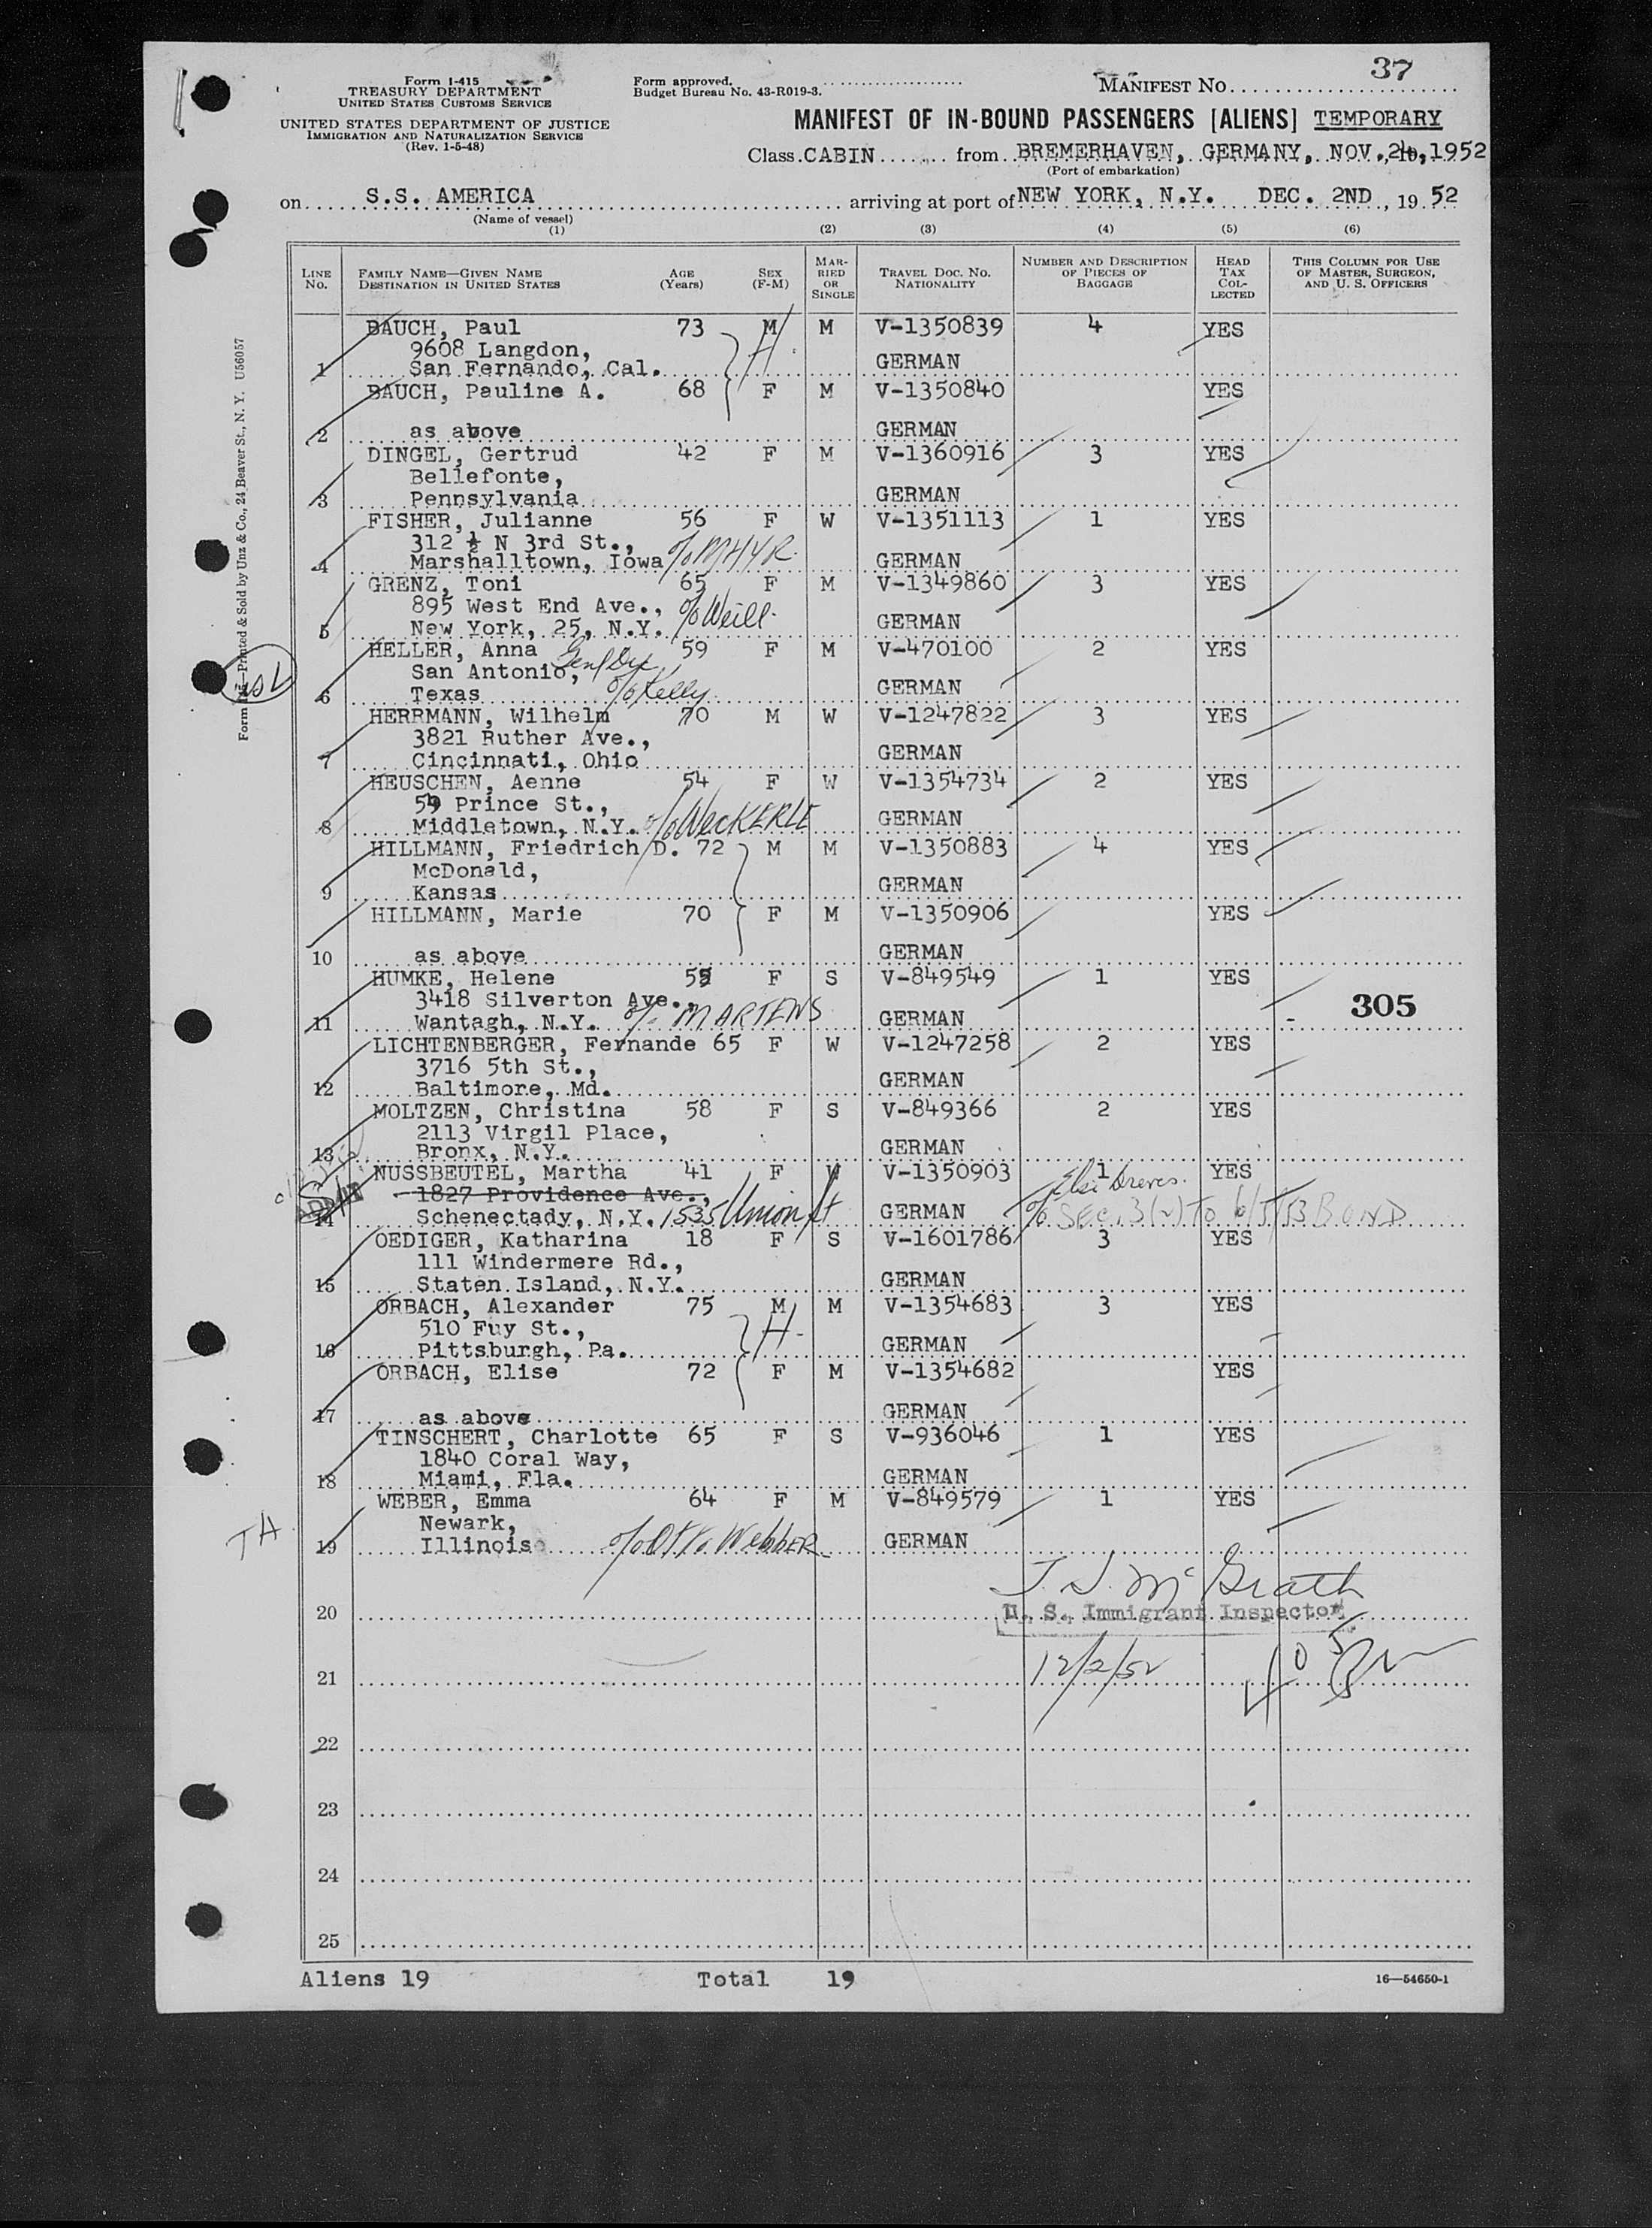 37
Form I-415
TREASURY DEPARTMENT
UNITED STATES CUSTOMS SERVICE
UNITED STATES DEPARTMENT OF JUSTICE
IMMIGRATION AND NATURALIZATION SERVICE
(Rev. 1-5-48)
Form approved.
Budget Bureau No. 43-R019-3.
MANIFEST NO.
MANIFEST OF IN-BOUND PASSENGERS [ALIENS] TEMPORARY
Class CABIN from BREMERHAVEN, GERMANY, NOV. , 1952
(Port of embarkation)
on S.S. AMERICA arriving at port of NEW YORK, N.Y. DEC. 2ND, 19 52
(Name of vessel)
(1) (2) (3) (4) (5) (6)
LINE NO. FAMILY NAME—GIVEN NAME DESTINATION IN UNITED STATES AGE (Years) SEX (F-M) MARRIED OR SINGLE TRAVEL DOC. NO. NATIONALITY NUMBER AND DESCRIPTION OF PIECES OF BAGGAGE HEAD TAX COLLECTED THIS COLUMN FOR USE OF MASTER, SURGEON, AND U. S. OFFICERS
BAUCH, Paul 73 M M V-1350839 4 YES
9608 Langdon, H.
1 San Fernando, Cal. GERMAN
BAUCH, Pauline A. 68 F M V-1350840 YES
2 as above GERMAN
DINGEL, Gertrud 42 F M V-1360916 3 YES
Bellefonte,
3 Pennsylvania GERMAN
FISHER, Julianne 56 F W V-1351113 1 YES
312 ½ N 3rd St.,
4 Marshalltown, Iowa GERMAN
GRENZ, Toni 65 F M V-1349860 3 YES
895 West End Ave., c/o Weill.
5 New York, 25, N.Y. GERMAN
HELLER, Anna 59 F M V-470100 2 YES
San Antonio, Gen/Del
6 Texas c/o Kelly. GERMAN
HERRMANN, Wilhelm 70 M W V-1247822 3 YES
3821 Ruther Ave.,
7 Cincinnati, Ohio GERMAN
HEUSCHEN, Aenne 54 F W V-1354734 2 YES
59 Prince St.,
8 Middletown, N.Y. c/o WecKERLE GERMAN
HILLMANN, Friedrich D. 72 M M V-1350883 4 YES
McDonald,
9 Kansas GERMAN
HILLMANN, Marie 70 F M V-1350906 YES
10 as above GERMAN
HUMKE, Helene F S V-849549 1 YES
3418 Silverton Ave., 305
11 Wantagh, N.Y. c/o MARTENS GERMAN
LICHTENBERGER, Fernande 65 F W V-1247258 2 YES
3716 5th St.,
12 Baltimore, Md. GERMAN
MOLTZEN, Christina 58 F S V-849366 2 YES
2113 Virgil Place,
13 Bronx, N.Y. GERMAN
NUSSBEUTEL, Martha 41 F V-1350903 1 YES
1827 Providence Ave., Else Dreves.
14 Schenectady, N.Y. 1535 Union St GERMAN c/o SEC. 3(2) TO 6/5/53 BOND
OEDIGER, Katharina 18 F S V-1601786 3 YES
111 Windermere Rd.,
15 Staten Island, N.Y. GERMAN
ORBACH, Alexander 75 M M V-1354683 3 YES
510 Fuy St., H.
16 Pittsburgh, Pa. GERMAN
ORBACH, Elise 72 F M V-1354682 YES
17 as above GERMAN
TINSCHERT, Charlotte 65 F S V-936046 1 YES
1840 Coral Way,
18 Miami, Fla. GERMAN
WEBER, Emma 64 F M V-849579 1 YES
TA Newark,
19 Illinois c/o Otto Webber GERMAN
J. J. McGrath
20 U. S. Immigrant Inspector
21 12/2/52
22
23
24
25
Aliens 19 Total 19 16—54650-1
Printed & Sold by Unz & Co., 24 Beaver St., N. Y. U56057